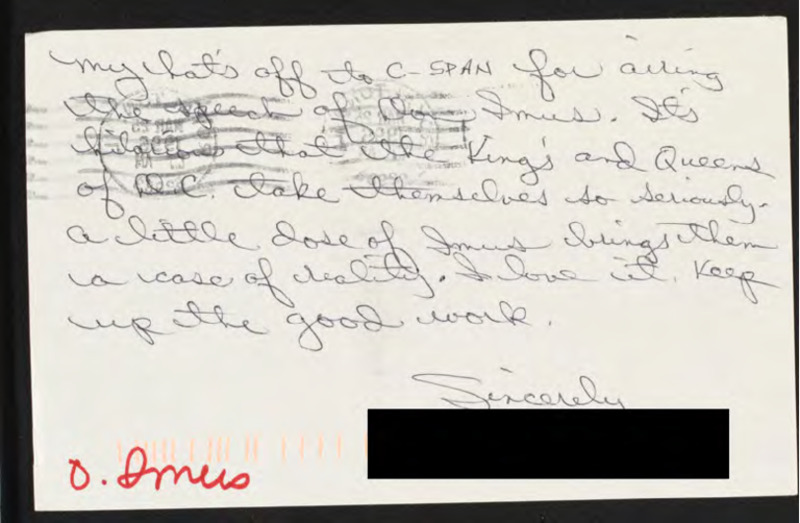 My hat's off to C-SPAN for airing
the speech of Don Imus. It's
hilarious that the King's and Queens
of D.C. take themselves so seriously.
A little dose of Imus brings them
a case of reality. I love it. Keep
up the good work.
Sincerely
D. Imus